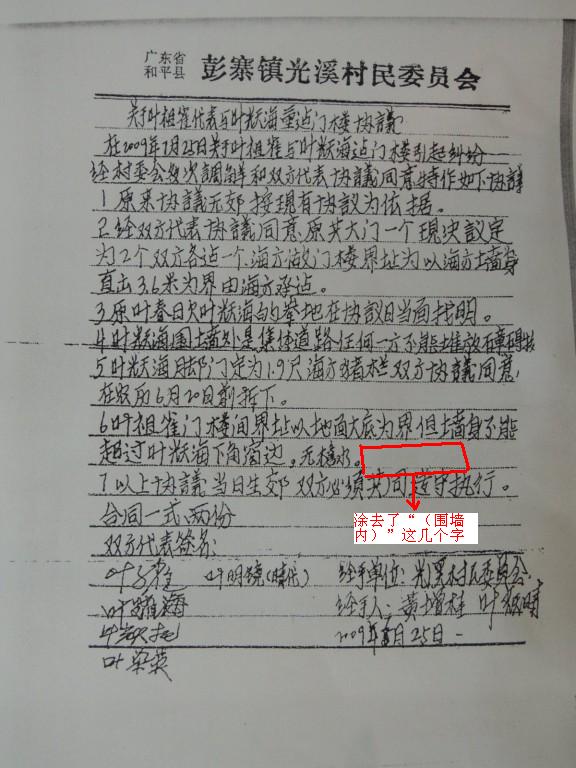 广东省
和平县 彭寨镇光溪村民委员会
关于叶祖雀代表与叶跃海重迠门楼协議
在2009年7月25日关于叶祖雀与叶跃海迠门楼引起纠纷
经村委会数次調解和双方代表协議同意特作如下协議
1原来协議无効按现有协议为依据。
2.经双方代表协議同意原共大门一个现决議定
为2个双方各迠一个海方做门楼界址为以海方土墙身
直出3.6米为界由海方承迠。
3.原叶春日欠叶跃海的举地在协议日当面找明。
4叶跃海围土墙外是集体道路任何一方不能堆放石障碍物
5叶跃海 门定为1.9尺海方 双方协議同意
在农历6月20日前拆下。
6叶祖雀门楼间界址以地面大底为界但墙身不能
超过叶跃海下角窗边。无 水。
7.以上协議当日生効双方必须共同遵守执行。
合同一式两份
双方代表签名:
叶明 经手单位:光溪村民委员会
叶跃海 经手人:黄增桂 叶
叶 2009年 月25日
叶荣英
涂去了“(围墙
内)”这几个字